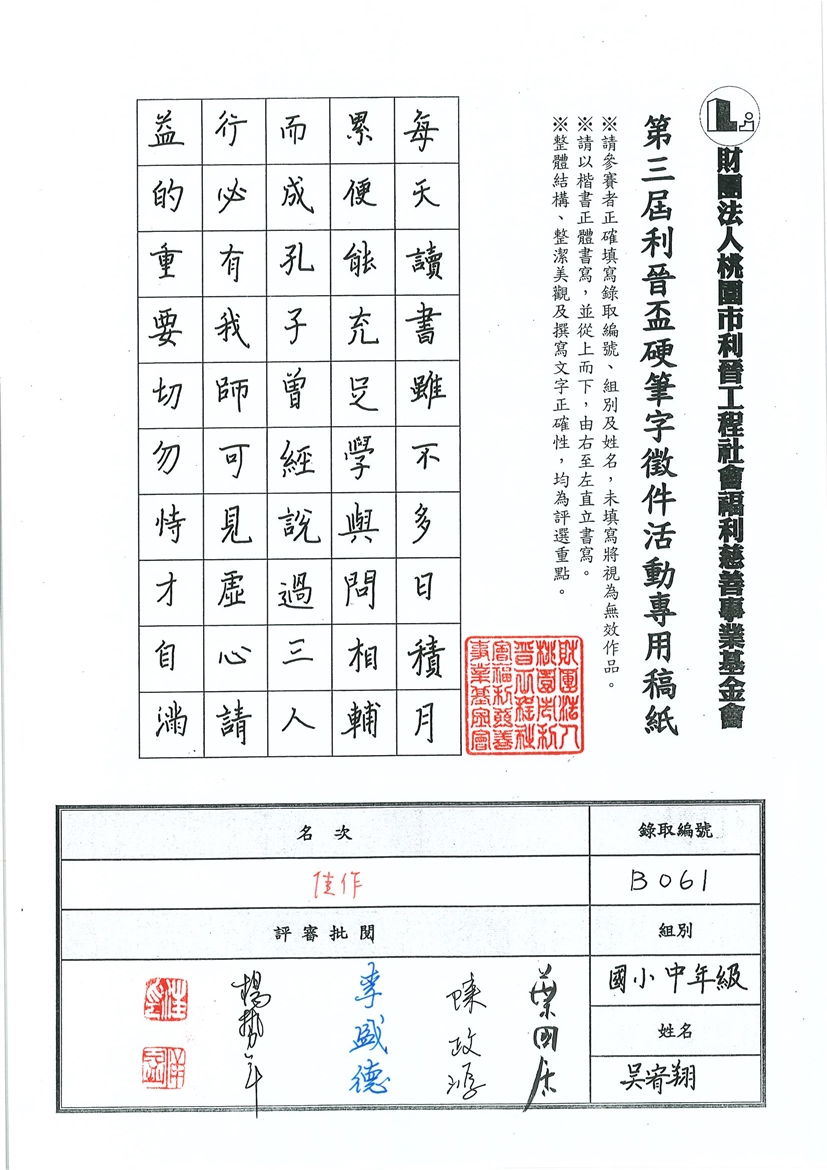 財團法人桃園市利晉工程社會福利慈善事業基金會
第三屆利晉盃硬筆字徵件活動專用稿紙
※請參賽者正確填寫錄取編號、組別及姓名，未填寫將視為無效作品。
※請以楷書正體書寫，並從上而下，由右至左直立書寫。
※整體結構、整潔美觀及撰寫文字正確性，均為評選重點。
每天讀書雖不多日積月
累便能充足學與問相輔
而成孔子曾經說過三人
行必有我師可見虛心請
益的重要切勿恃才自滿
財團法人
桃園市利
晉工程社
會福利慈善
事業基金會
錄取編號
B061
組別
國小中年級
姓名
吳宥翔
名次
佳作
評審批閱
葉國居
陳政淳
李盛德
楊勢年